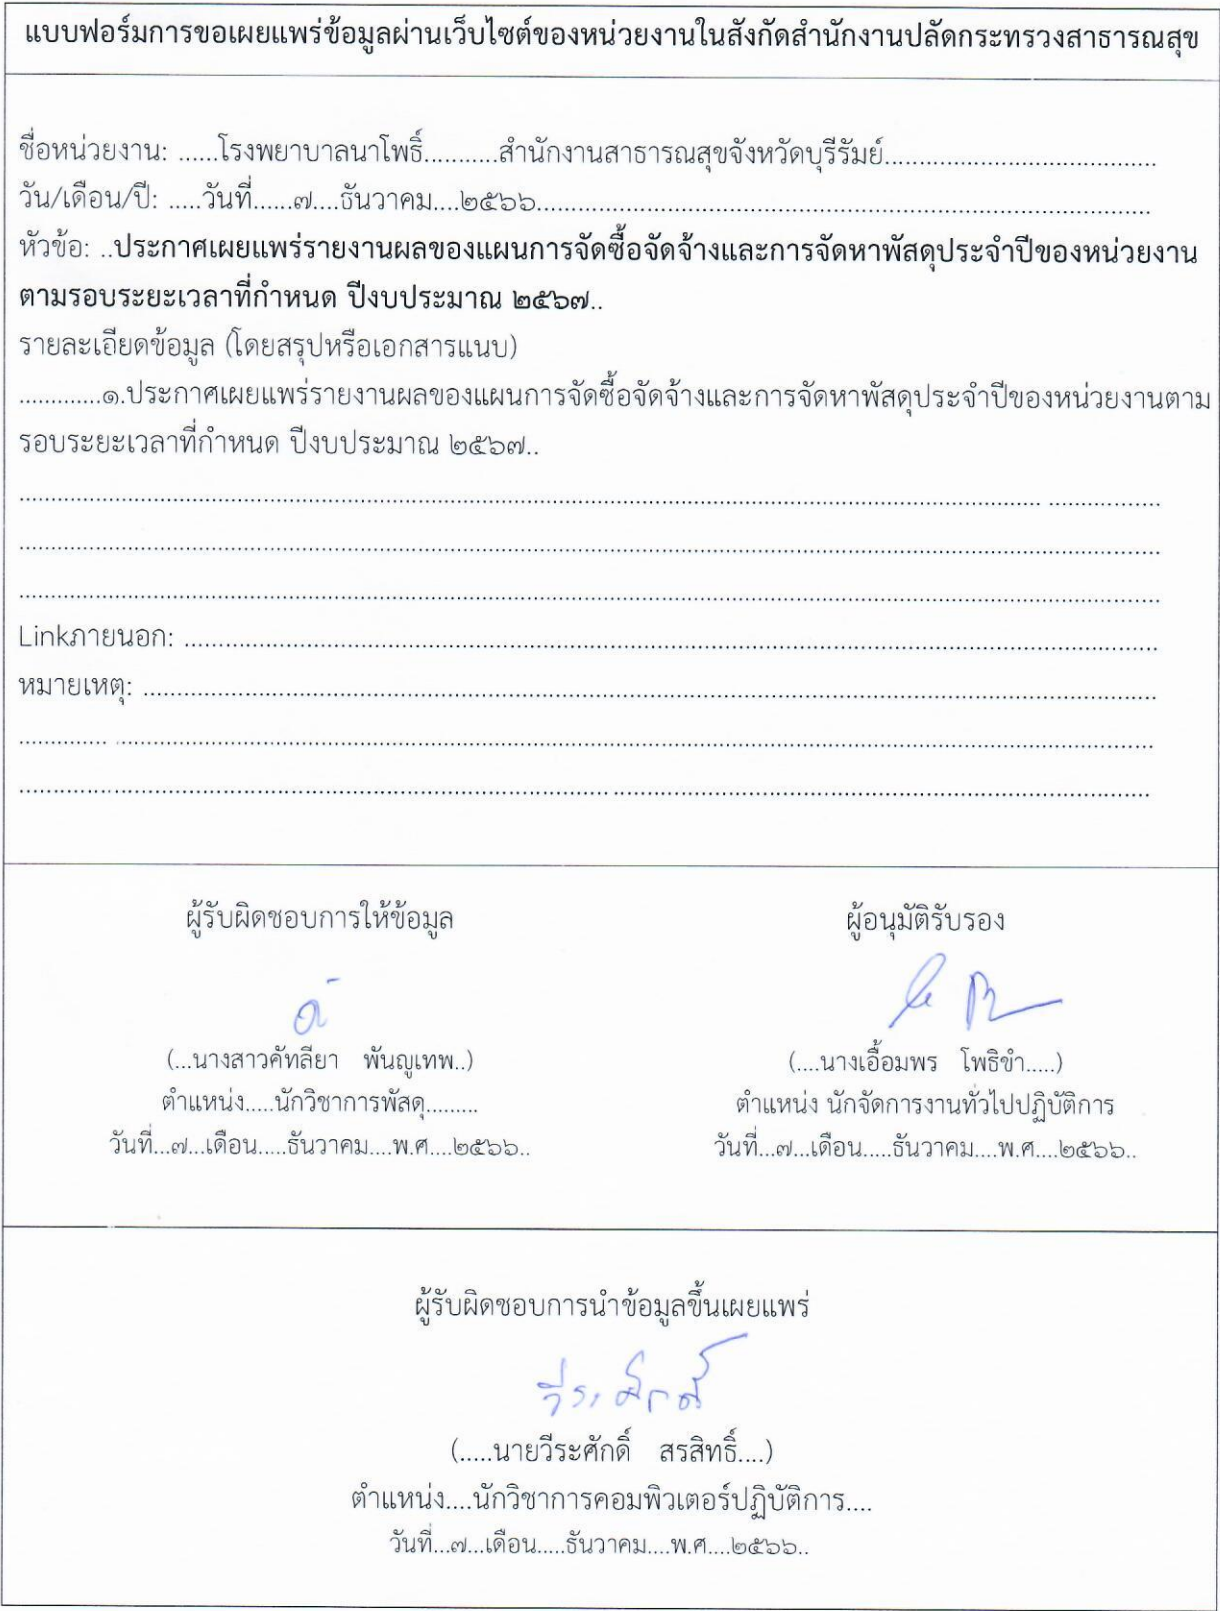 แบบฟอร์มการขอเผยแพร่ข้อมูลผ่านเว็บไซต์ของหน่วยงานในสังกัดสำนักงานปลัดกระทรวงสาธารณสุข
ชื่อหน่วยงาน: ......โรงพยาบาลนาโพธิ์...........สำนักงานสาธารณสุขจังหวัดบุรีรัมย์........................................
วัน/เดือน/ปี: .....วันที่......๗....ธันวาคม....๒๕๖๖..........................................................................................
หัวข้อ: ..ประกาศเผยแพร่รายงานผลของแผนการจัดซื้อจัดจ้างและการจัดหาพัสดุประจำปีของหน่วยงาน
ตามรอบระยะเวลาที่กำหนด ปีงบประมาณ ๒๕๖๗..
รายละเอียดข้อมูล (โดยสรุปหรือเอกสารแนบ)
.............๑.ประกาศเผยแพร่รายงานผลของแผนการจัดซื้อจัดจ้างและการจัดหาพัสดุประจำปีของหน่วยงานตาม
รอบระยะเวลาที่กำหนด ปีงบประมาณ ๒๕๖๗..
Linkภายนอก: ..........................................................................................
หมายเหตุ: ..........................................................................................
ผู้รับผิดชอบการให้ข้อมูล
ผู้อนุมัติรับรอง
(...นางสาวคัทลียา พันญเทพ..)
(....นางเอื้อมพร โพธิขำ.....)
ตำแหน่ง.....นักวิชาการพัสดุ.........
ตำแหน่ง นักจัดการงานทั่วไปปฏิบัติการ
วันที่...๗...เดือน.....ธันวาคม....พ.ศ....๒๕๖๖..
วันที่...๗...เดือน.....ธันวาคม....พ.ศ....๒๕๖๖..
ผู้รับผิดชอบการนำข้อมูลขึ้นเผยแพร่
วีระศักดิ์
(.....นายวีระศักดิ์ สรสิทธิ์....)
ตำแหน่ง....นักวิชาการคอมพิวเตอร์ปฏิบัติการ....
วันที่...๗...เดือน.....ธันวาคม....พ.ศ....๒๕๖๖..